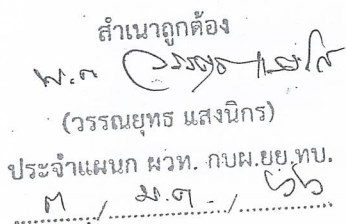 สำเนาถูกต้อง
พ.ต.
(วรรณยุทธ แสงนิกร)
ประจำแผนก ผวท. กบผ.ยย.ทบ.
๓ / ม.ค. / ๖๖